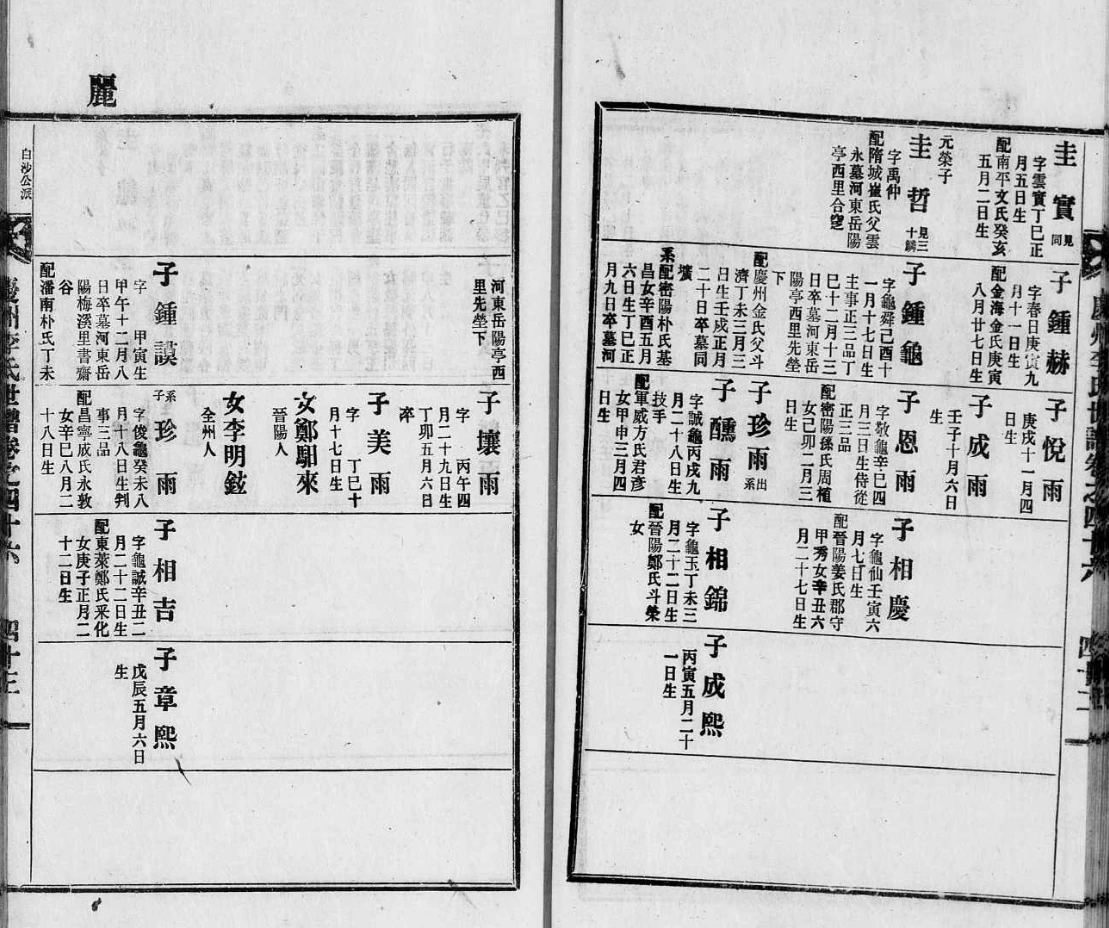 圭實
見
同
字雲實丁巳正
月五日生
配南平文氏癸亥
五月二日生
元榮子
圭哲
見三
十鱗
字禹仲
配隋城崔氏父雲
永墓河東岳陽
亭西里合窆
子鍾赫
字春日庚寅九
月十一日生
配金海金氏庚寅
八月廿七日生
子鍾龜
字龜舜己酉十
一月十七日生
主事正三品丁
巳十二月十三
日卒墓河東岳
陽亭西里先塋
下
配慶州金氏父斗
濟丁未三月三
日生壬戌正月
二十日卒墓同
壙
系配密陽朴氏基
昌女辛酉五月
六日生丁巳正
月九日卒墓河
子悅雨
庚戌十一月四
日生
子成雨
壬子十月六日
生
子恩雨
字敬龜辛巳四
月三日生侍從
正三品
配密陽孫氏周植
女己卯二月三
日生
子珍雨
出
系
子醺雨
字誠龜丙戌九
月二十八日生
技手
配軍威方氏君彥
女甲申三月四
日生
子相慶
字龜仙壬寅六
月七日生
配晉陽姜氏郡守
甲秀女辛丑六
月二十七日生
子相錦
字龜玉丁未三
月二十二日生
配晉陽鄭氏斗榮
女
子成熙
丙寅五月二十
一日生
麗
河東岳陽亭西
里先塋下
子鍾謨
字 甲寅生
甲午十二月八
日卒墓河東岳
陽梅溪里書齋
谷
配潘南朴氏丁未
子壤雨
字 丙午四
月二十九日生
丁卯五月六日
卒
子美雨
字 丁巳十
月十七日生
女鄭馹來
晉陽人
女李明鉉
全州人
系
子
子珍雨
字俊龜癸未八
月十八日生判
事三品
配昌寧成氏永敦
女辛巳八月二
十八日生
子相吉
字龜誠辛丑二
月二十二日生
配東萊鄭氏采化
女庚子正月二
十二日生
子章熙
戊辰五月六日
生
白沙公派
慶州李氏世譜卷之四十六
四十三